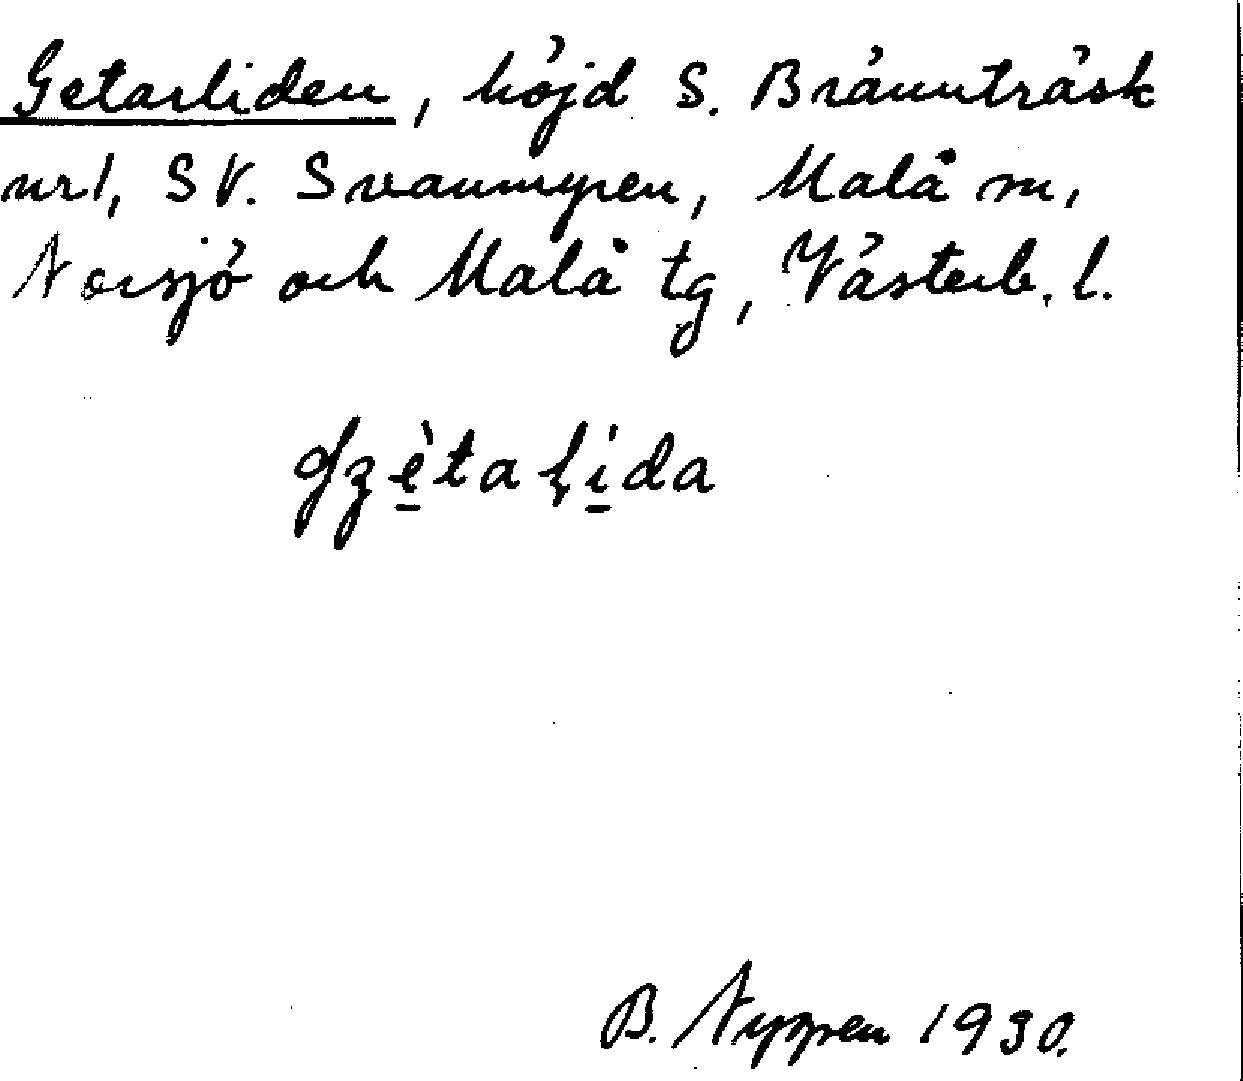 Getarliden, höjd S. Brännträsk
nr1, SV. Svanmyren, Malå sn,
Norsjö och Malå tg, Västerb. l.
B. Nygren 1930.